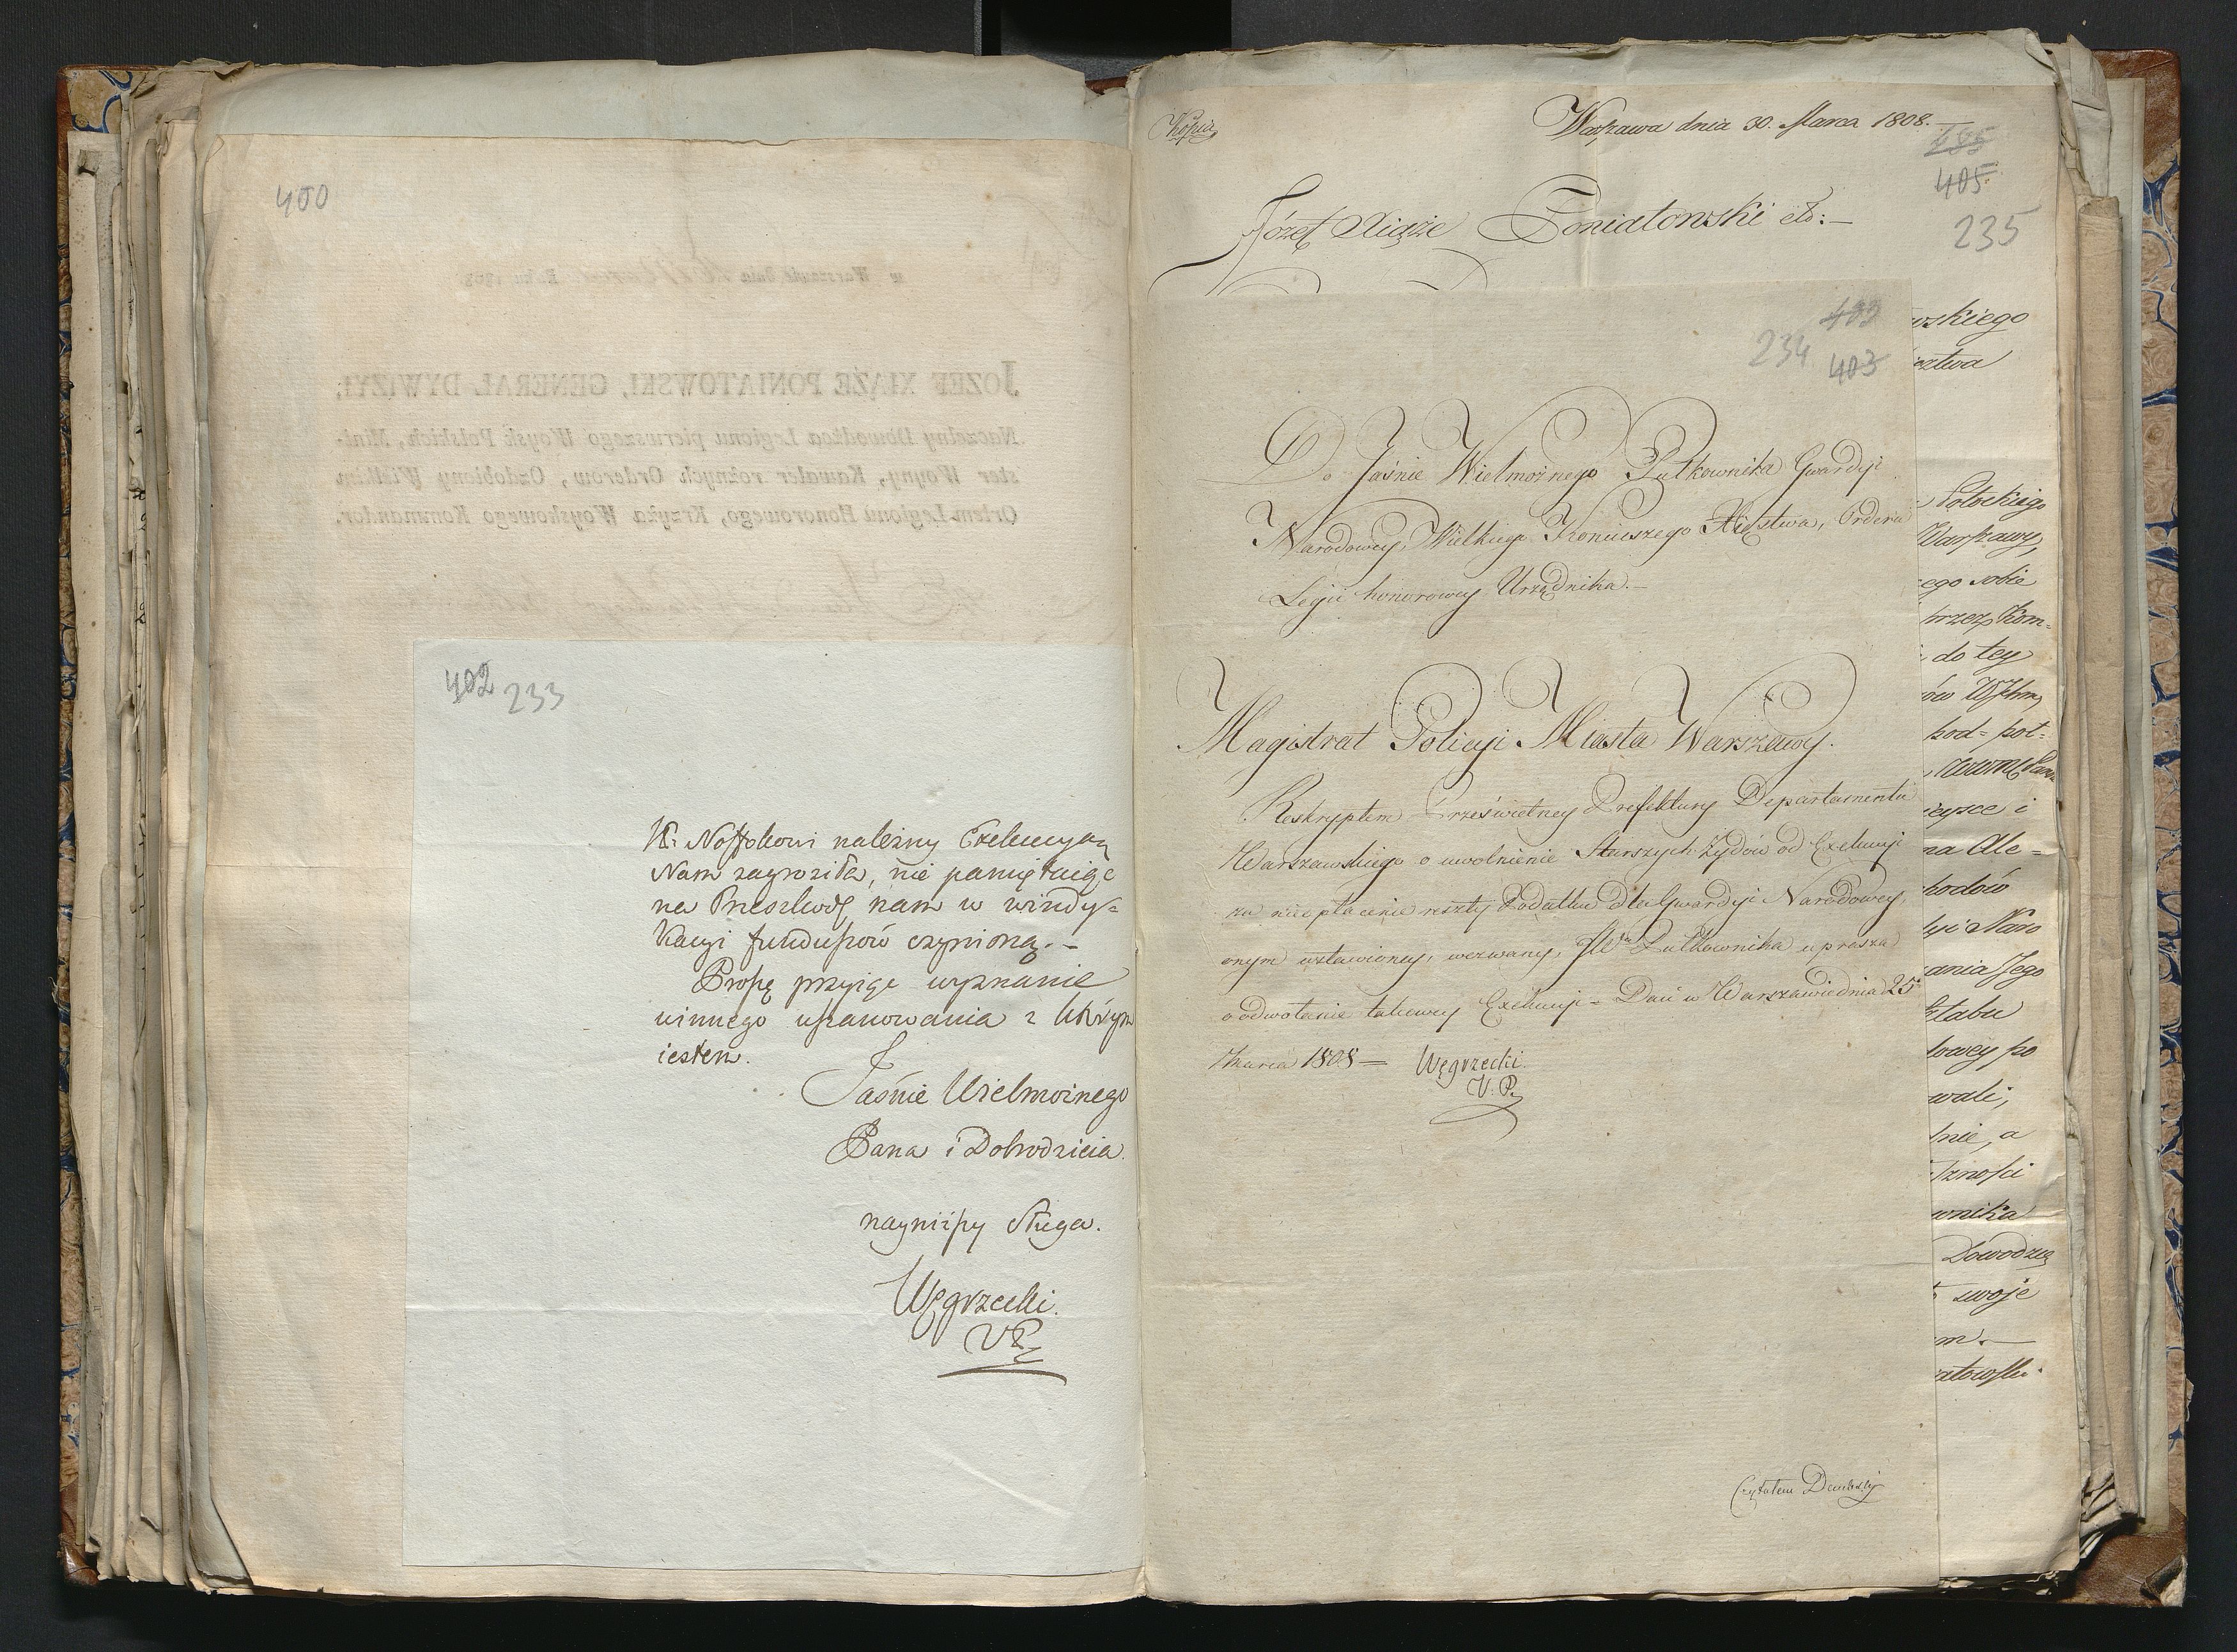 400
w Warszawie dnia
JOZEF XIĄŻE PONIATOWSKI, GENERAŁ DYWIZYI,
Naczelny Dowodźca Legionu pierwszego Woysk Polskich, Mini-
ster Woyny, Kawaler rożnych Orderow, Ozdobiony Wielkim
Orłem Legionu Honorowego, Krzyża Woyskowego Kommandor.
402 233
należny Exekucyą
Nam zagroziła, nie pamiętaiąc
na Przeszkodę nam w windy=
kacyi funduszów czynioną.-
Proszę przyiąć wyznanie
winnego uszanowania z którym
iestem.
Jaśnie Wielmożnego
Pana i Dobrodzieia.
nayniższy Sługa.
Węgrzecki.
VP
Kopia
Warszawa dnia 30. Marca 1808.-
405
235
Józef Xiąże Poniatowski etc:-
wskiego
402
234 403
Do Jaśnie Wielmożnego Pułkownika Gwardyi
Narodowey, Wielkiego Koniuszego Xięstwa, Orderu
Legii honorowey Urzędnika.-
Magistrat Policyi Miasta Warszawy.
Reskryptem Prześwietney Prefektury Departamentu
Warszawskiego o uwolnienie Starszych Żydów od Exekucyi
za nie płacenie reszty Podatku dla Gwardyi Narodowey,
onym wstawioney, wezwany, JWo Pułkownika uprasza
o odwołanie takowey Exekucyi = Dan w Warszawie dnia 25o
Marca 1808 =
Węgrzecki.
V. P.
Czytałem
Potockiego
Warszawy,
ego sobie
przez Kom=
do tey
pod= poł=
i
na Ale=
chodów
yi Naro
ania Jego
Sztabu
dowey po
wali,
nie, a
wnika
Dowodzą
swoje
m.-